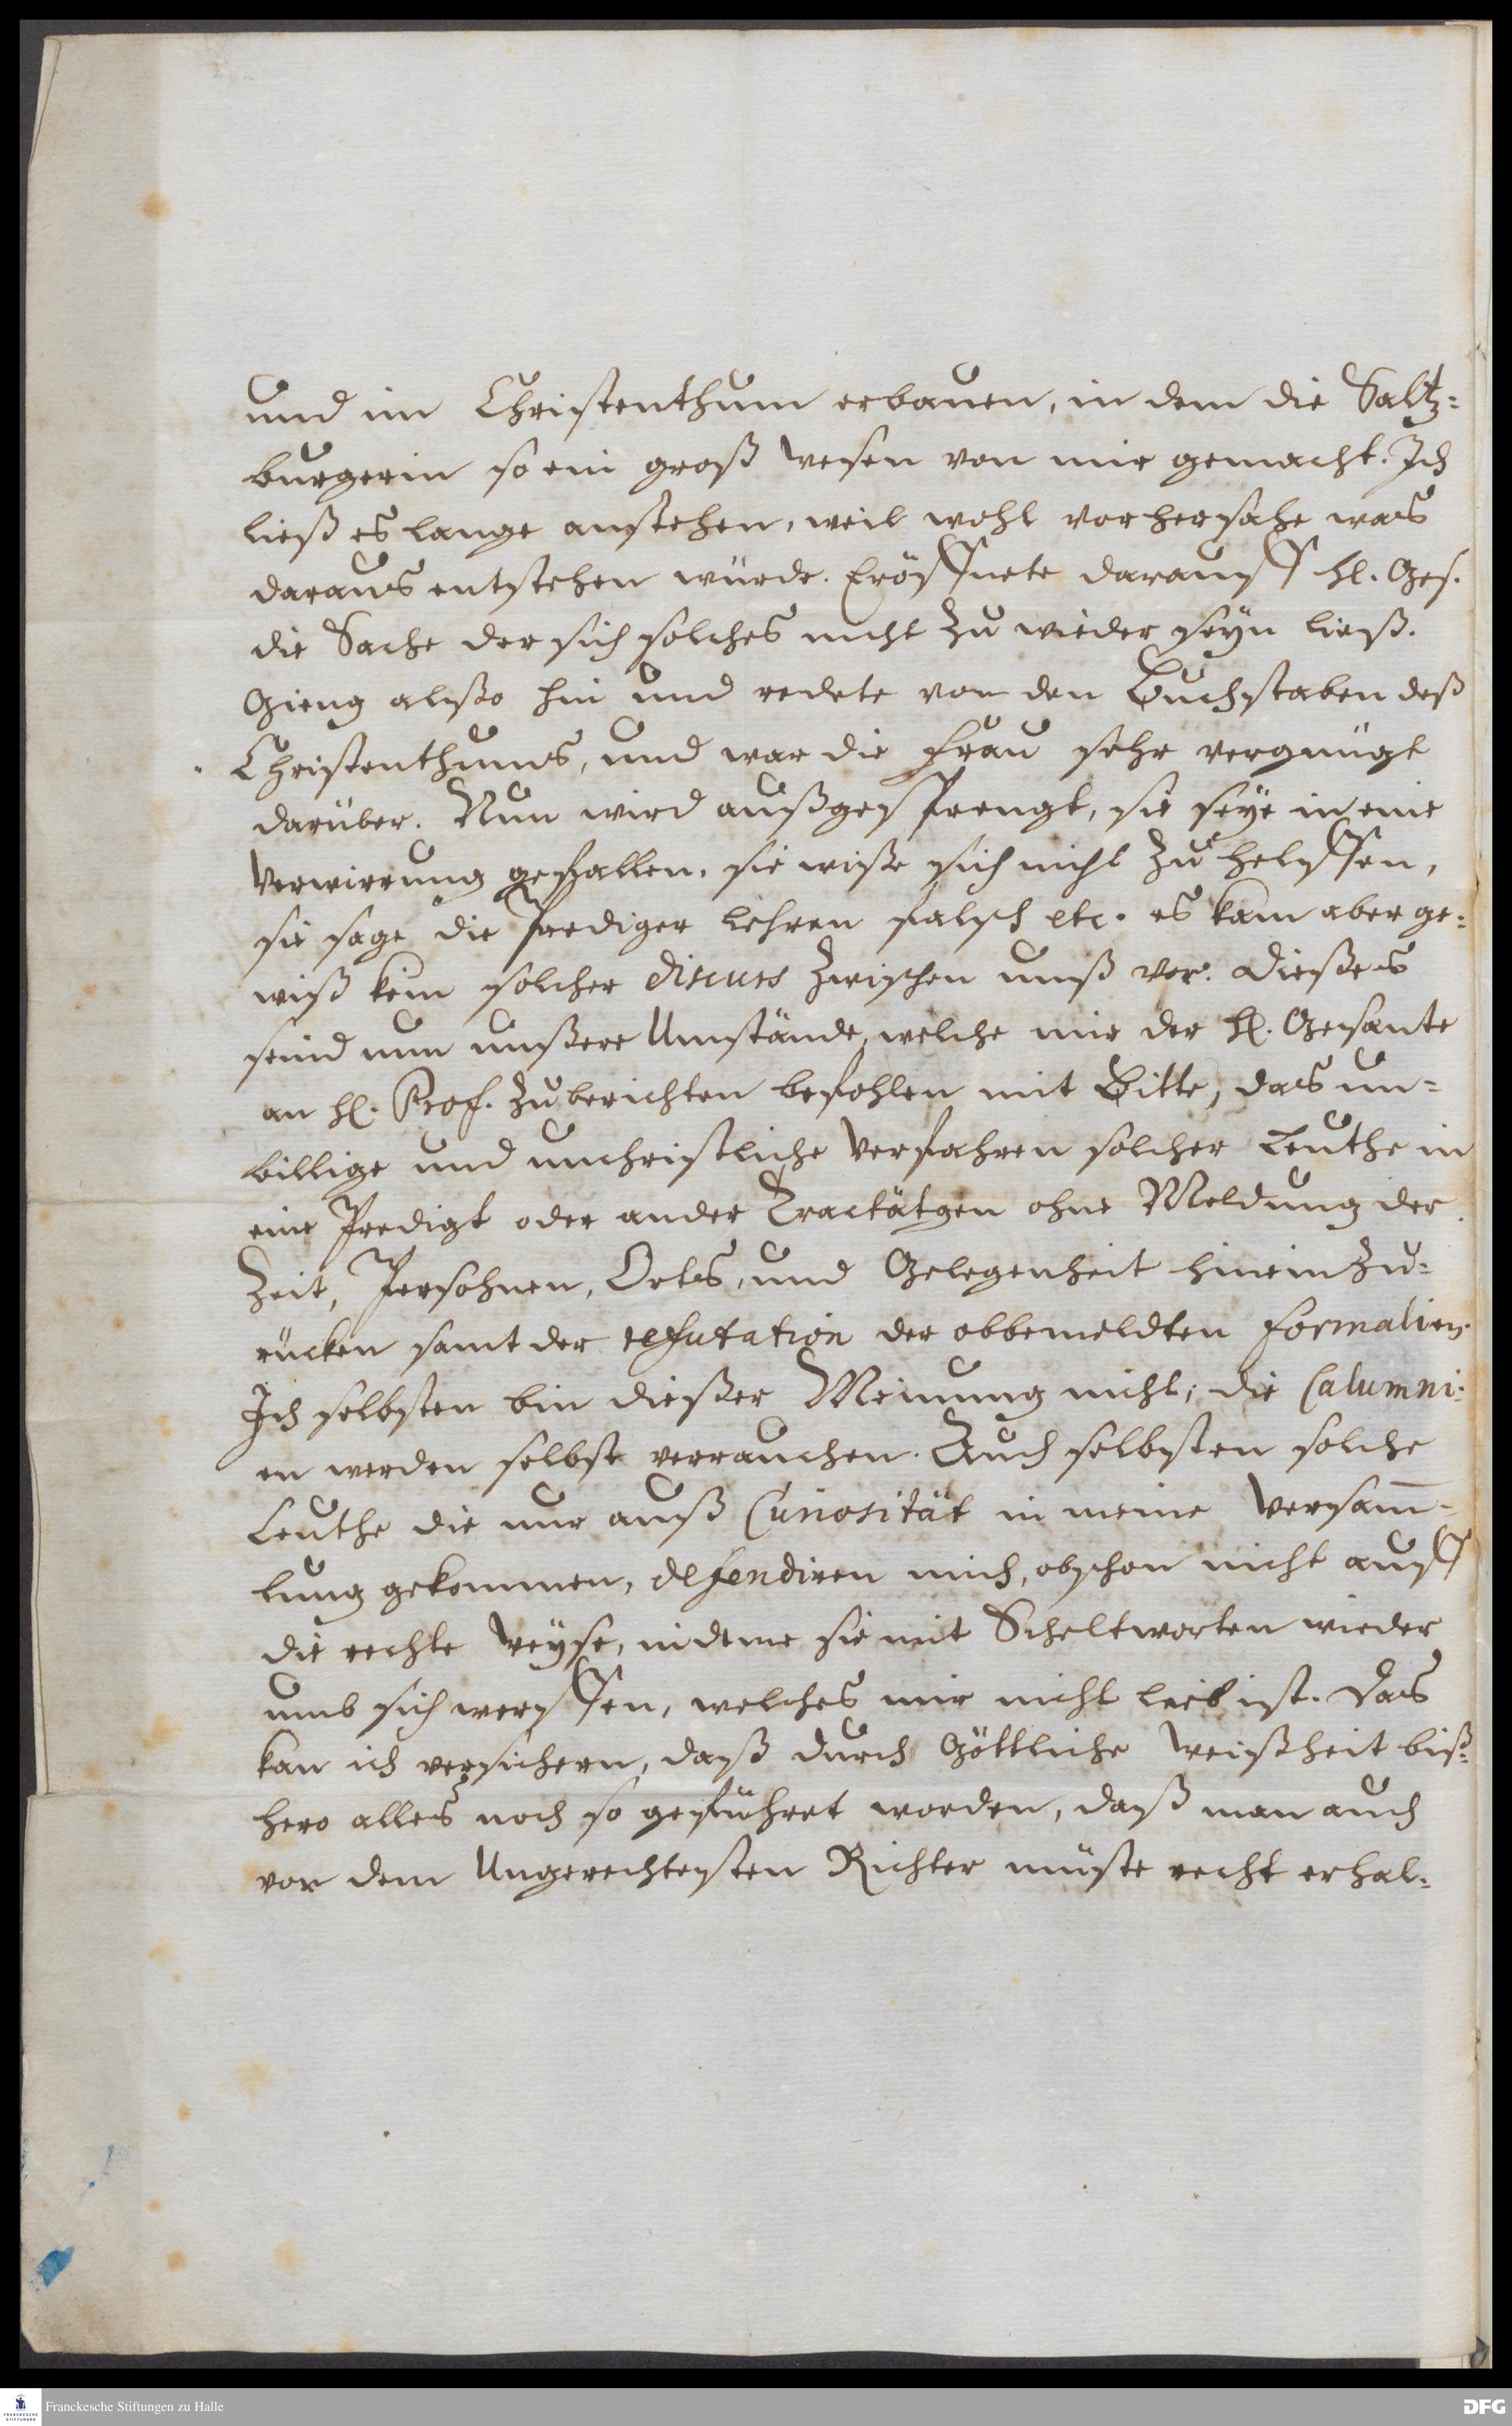 und im Christenthum erbauen, in dem die Saltz=
burgerin so ein groß wesen von mir gemacht. Ich
ließ es lange anstehen, weil wohl vorhersahe was
daraus entstehen würde. Eröffnete darauff H. Ges.
die Sache der sich solches nicht zu wieder seyn ließ.
Gieng alßo hin und redete von den Buchstaben deß
Christenthums, und war die Frau sehr vergnügt
darüber. Nun wird außgesprengt, sie seye in eine
Verwirrung gefallen, sie wiße sich nicht zu helffen,
sie sage die Prediger lehren falsch etc. es kam aber ge=
wiß kein solcher discurs zwischen unß vor. Dießes
seind nun unßere Umstände, welche mir der H. Gesante
an H. Prof. zu berichten befohlen mit Bitte, das un=
billige und unchristliche Verfahren solcher Leuthe in
eine Predigt oder ander Tractätgen ohne Meldung der
Zeit, Persohnen, Orts, und Gelegenheit hinein zu=
rücken samt der refutation der obbemeldten formalien.
Ich selbsten bin dießer Meinung nicht; die Calumni=
en werden selbst verrauchen. Auch selbsten solche
Leuthe die nur auß Curiosität in meine Versam̄=
lung gekommen, defendiren mich, obschon nicht auff
die rechte weyse, indeme sie mit Scheltworten wieder
umb sich werffen, welches mir nicht lieb ist. Das
kan ich versichern, daß durch Göttliche Weißheit biß=
hero alles noch so geführet worden, daß man auch
vor dem Ungerechtesten Richter müste recht erhal=
Franckesche Stiftungen zu Halle
DFG